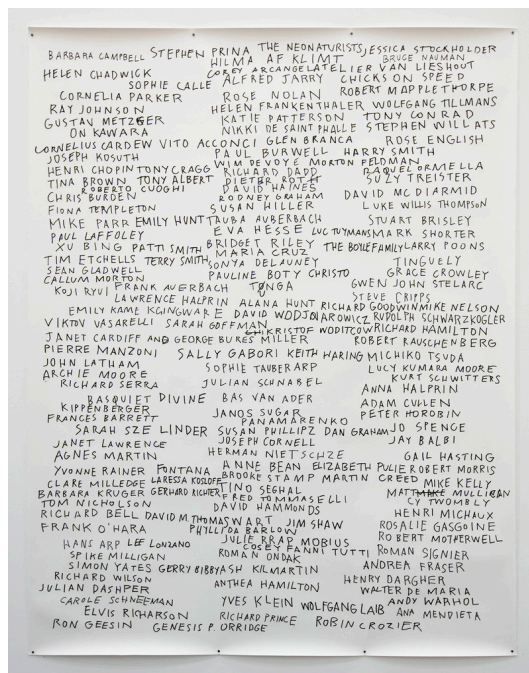 BARBARA CAMPBELL STEPHEN PRINA THE NEONATURISTS, JESSICA STOCKHOLDER
HILMA AF KLIMT BRUCE NAUMAN
HELEN CHADWICK COREY ARCANGEL ATELIER VAN LIESHOUT
SOPHIE CALLE ALFRED JARRY CHICKS ON SPEED
CORNELIA PARKER ROSE NOLAN ROBERT MAPPLETHORPE
RAY JOHNSON HELEN FRANKENTHALER WOLFGANG TILLMANS
GUSTAV METZGER KATIE PATTERSON TONY CONRAD
ON KAWARA NIKKI DE SAINT PHALLE STEPHEN WILLATS
CORNELIUS CARDEW VITO ACCONCI GLEN BRANCA ROSE ENGLISH
JOSEPH KOSUTH PAUL BURWELL HARRY SMITH
HENRI CHOPIN TONY CRAGG WIM DEVOYE MORTON FELDMAN
TINA BROWN TONY ALBERT RICHARD DADD RAQUEL ORMELLA
ROBERTO CUOGHI DIETER ROTH SUZY TREISTER
CHRIS BURDEN DAVID HAINES DAVID MCDIARMID
FIONA TEMPLETON RODNEY GRAHAM
SUSAN HILLER LUKE WILLIS THOMPSON
MIKE PARR EMILY HUNT TAUBA AUERBACH STUART BRISLEY
PAUL LAFFOLEY EVA HESSE LUC TUYMANS MARK SHORTER
XU BING PATTI SMITH BRIDGET RILEY THE BOYLE FAMILY LARRY POONS
TIM ETCHELLS TERRY SMITH MARIA CRUZ
SEAN GLADWELL SONYA DELAUNEY TINGUELY
CALLUM MORTON PAULINE BOTY CHRISTO GRACE CROWLEY
KOJI RYUI FRANK AUERBACH TONGA GWEN JOHN STELARC
LAWRENCE HALPRIN ALANA HUNT RICHARD GOODWIN MIKE NELSON
STEVE CRIPPS
EMILY KAME KGINGWARE DAVID WODJOJAROWICZ RUDOLPH SCHWARZKOGLER
VIKTOV VASARELLI SARAH GOFFMAN CHRISTOF WODITCOW RICHARD HAMILTON
JANET CARDIFF AND GEORGE BURES MILLER ROBERT RAUSCHENBERG
PIERRE MANZONI SALLY GABORI KEITH HARING MICHIKO TSUDA
JOHN LATHAM SOPHIE TAUBER ARP LUCY KUMARA MOORE
ARCHIE MOORE KURT SCHWITTERS
RICHARD SERRA JULIAN SCHNABEL ANNA HALPRIN
BASQUIET DIVINE BAS VAN ADER ADAM CULLEN
KIPPENBERGER JANOS SUGAR PETER HOROBIN
FRANCES BARRETT PANAMARENKO
SARAH SZE LINDER SUSAN PHILLIPZ DAN GRAHAM JO SPENCE
JANET LAWRENCE JOSEPH CORNELL JAY BALBI
AGNES MARTIN HERMAN NIETSCHZE GAIL HASTING
YVONNE RAINER FONTANA ANNE BEAN ELIZABETH PULIE ROBERT MORRIS
CLARE MILLEDGE LARESSA KOSLOFF BROOKE STAMP MARTIN CREED MIKE KELLY
BARBARA KRUGER GERHARD RICHTER TINO SEGHAL MATT MULLICAN
TOM NICHOLSON FRED TOMMASELLI CY TWOMBLY
RICHARD BELL DAVID M THOMAS DAVID HAMMONDS HENRI MICHAUX
FRANK O'HARA WART JIM SHAW ROSALIE GASGOINE
PHYLLIDA BARLOW
HANS ARP LEE LONZANO JULIE RRAP MOBIUS ROBERT MOTHERWELL
SPIKE MILLIGAN COSEY FANNI TUTTI ROMAN SIGNIER
ROMAN ONDAK
SIMON YATES GERRY BIBBY ASH KILMARTIN ANDREA FRASER
RICHARD WILSON HENRY DARGHER
JULIAN DASHPER ANTHEA HAMILTON WALTER DE MARIA
CAROLE SCHNEEMAN YVES KLEIN WOLFGANG LAIB ANDY WARHOL
ELVIS RICHARSON RICHARD PRINCE ANA MENDIETA
RON GEESIN GENESIS P. ORRIDGE ROBIN CROZIER